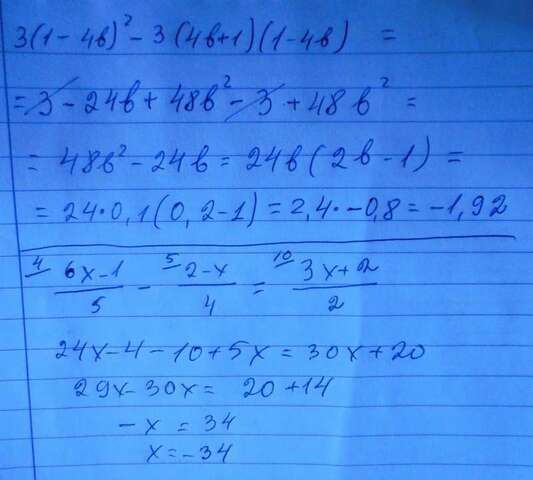 3(1-4в)² - 3(4в+1)(1-4в) =
= 3 - 24в + 48в² - 3 + 48в² =
= 48в² - 24в = 24в(2в-1) =
= 24·0,1(0,2-1) = 2,4·-0,8 = -1,92
4 6x-1/5 - 5 2-x/4 = 10 3x+2/2
24x-4-10+5x = 30x+20
29x-30x = 20+14
-x = 34
x = -34